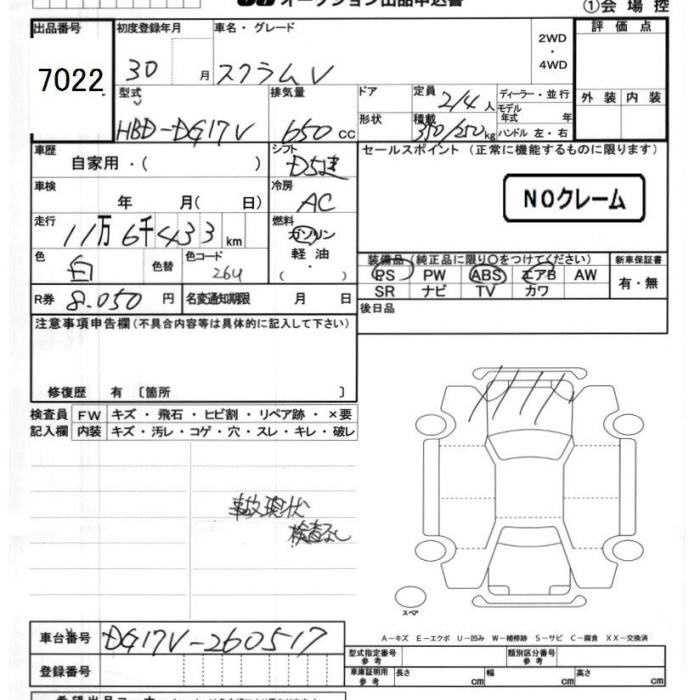 オークション出品申込書
①会場控
出品番号 初度登録年月 車名・グレード 2WD・4WD 評価点
7022 30 月 スクラムV
型式 排気量 ドア 定員 2/4 人 ディーラー・並行 外装 内装
HBD-DG17V 650 cc 形状 積載 350/250 kg モデル年式 年 ハンドル 左・右
車歴 シフト セールスポイント (正常に機能するものに限ります)
自家用・( ) D5速
車検 冷房 NOクレーム
年 月( 日) AC
走行 燃料
11万6千433 km ガソリン
色 色替 色コード 軽油
白 264 ( ・ )
装備品(純正品に限り○をつけてください) 新車保証書
PS PW ABS エアB AW 有・無
SR ナビ TV カワ
R券 8.050 円 名変通知期限 月 日 後日品
注意事項申告欄(不具合内容等は具体的に記入して下さい)
修復歴 有 〔箇所 〕
検査員 FW キズ・飛石・ヒビ割・リペア跡・×要
記入欄 内装 キズ・汚レ・コゲ・穴・スレ・キレ・破レ
事故現状
検査なし
スペア
A−キズ E−エクボ U−凹み W−補修跡 S−サビ C−腐食 XX−交換済
車台番号 DG17V-260517 型式指定番号 参考 類別区分番号 参考
登録番号 車庫証明用 参考 長さ cm 幅 cm 高さ cm